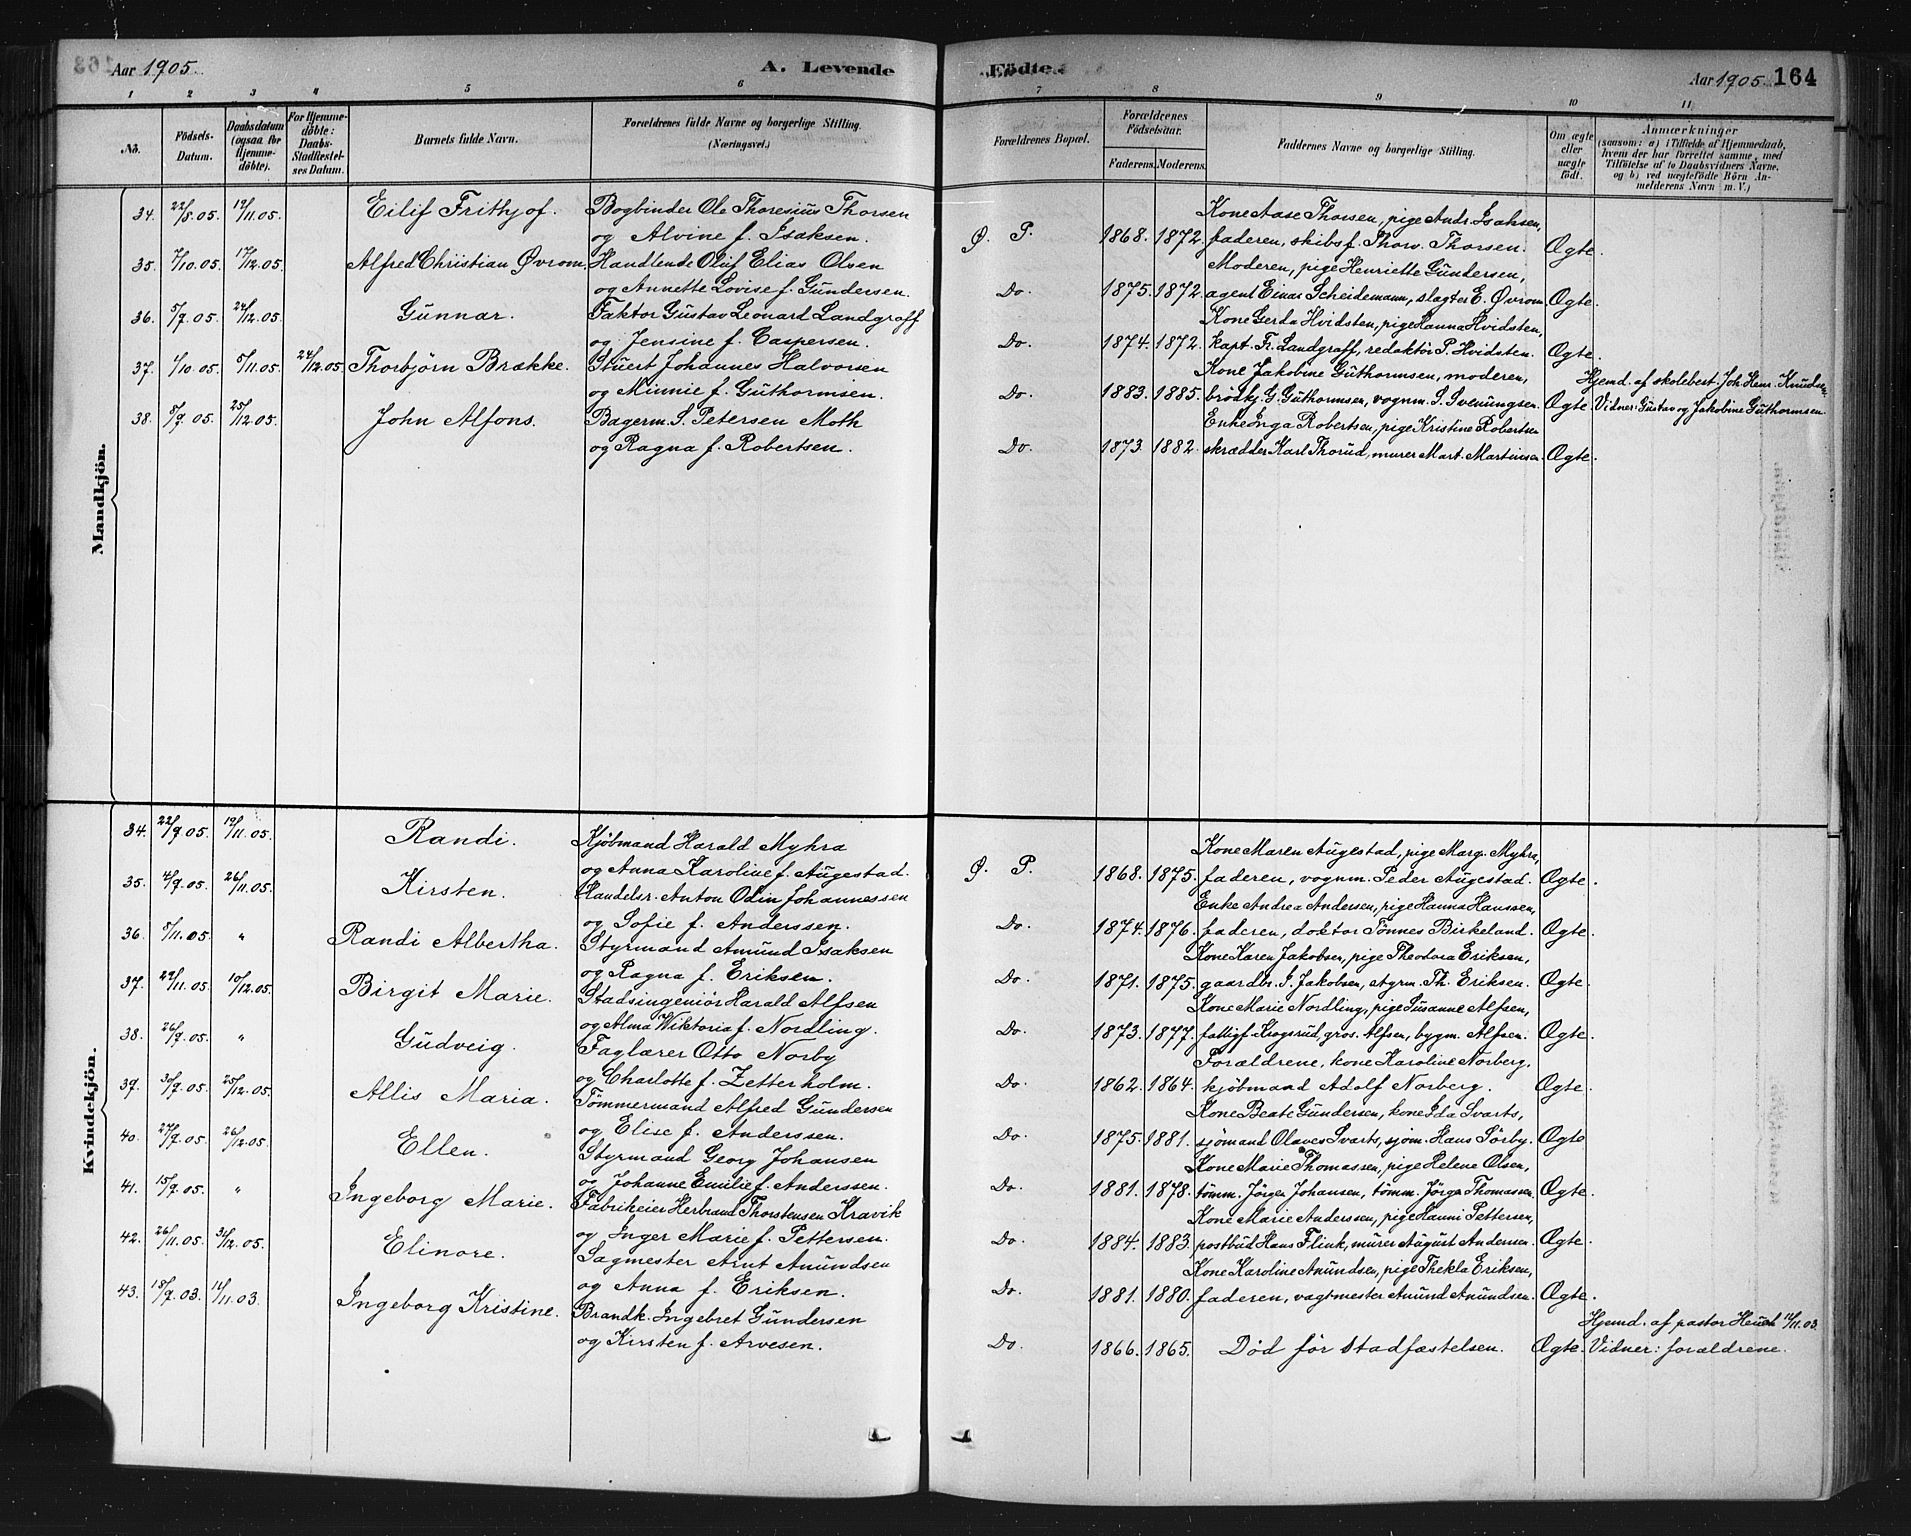 Aar 1905.
A. Levende
Födte.
Aar 1905. 164
1 2 3 4 5 6 7 8 9 10 11
No.
Födsels-Datum.
Daabsdatum (ogsaa for Hjemmedöbte).
For Hjemmedöbte: Daabs-Stadfæstelses Datum.
Barnets fulde Navn.
Forældrenes fulde Navne og borgerlige Stilling. (Næringsvei.)
Forældrenes Bopæl.
Forældrenes Födselsaar.
Faderens. Moderens.
Faddernes Navne og borgerlige Stilling.
Om ægte eller uægte födt.
Anmærkninger
(saasom: a) i Tilfælde af Hjemmedaab, hvem der har forrettet samme, med Tilföielse af to Daabsvidners Navne, og b) ved uægtefödte Börn Anmelderens Navn m. V.)
Mandkjön.
34. 22/8.05. 19/11.05. Eilif Frithjof. Bogbinder Ole Thoresius Thorsen
og Alvine f. Isaksen.
Ø. P. 1868. 1872. Kone Aase Thorsen, pige Andr. Isaksen,
faderen, skibsf. Thorv. Thorsen. Ægte.
35. 7/10.05. 17/12.05. Alfred Christian Øvrom. Handlende Oluf Elias Olsen
og Annette Lovise f. Gundersen.
Do. 1875. 1872. Moderen, pige Henriette Gundersen,
agent Einar Scheidemann, slagter E. Øvrom. Ægte.
36. 5/9.05. 24/12.05. Gunnar. Faktor Gustav Leonard Landgraff
og Jensine f. Caspersen.
Do. 1874. 1872. Kone Gerda Hvidsten, pige Hanna Hvidsten,
kapt. Fr. Landgraff, redaktör P. Hvidsten. Ægte.
37. 4/10.05. 5/11.05. 24/12.05. Thorbjörn Brække. Stuert Johannes Halvorsen
og Minnie f. Guthormsen.
Do. 1883. 1885. Kone Jakobine Guthormsen, moderen,
brödkj. G. Guthormsen, vognm. S. Svenungsen. Ægte.
Hjemd. af skolebest. Joh. Henr. Knudsen.
Vidner: Gustav og Jakobine Guthormsen
38. 5/9.05. 25/12.05. John Alfons. Bagerm. S. Petersen Moth
og Ragna f. Robertsen.
Do. 1873. 1882. Enke Inga Robertsen, pige Kristine Robertsen
skrædder Karl Thorud, murer Mart. Martinsen. Ægte.
Kvindekjön.
34. 22/9.05. 19/11.05. Randi. Kjöbmand Harald Myhra
og Anna Karoline f. Augestad.
Ø. P. 1868. 1875. Kone Maren Augestad, pige Marg. Myhra,
faderen, vognm. Peder Augestad. Ægte.
35. 4/9.05. 26/11.05. Kirsten. Handelsr. Anton Odin Johannessen
og Sofie f. Anderssen.
Do. 1874. 1876. Enke Andrea Andersen, pige Hanna Hanssen,
faderen, doktor Tönnes Birkeland. Ægte.
36. 5/11.05. " Randi Albertha. Styrmand Amund Isaksen
og Ragna f. Eriksen.
Do. 1871. 1875. Kone Karen Jakobsen, pige Theodora Eriksen,
gaardbr. I. Jakobsen, styrm. Th. Eriksen. Ægte.
37. 29/11.05. 10/12.05. Birgit Marie. Stadsingeniör Harald Alfsen
og Alma Wiktoria f. Nordling.
Do. 1873. 1877. Kone Marie Nordling, pige Susanne Alfsen,
fattigf. Kogsrud, gros. Alfsen, bygm. Alfsen. Ægte.
38. 26/9.05. " Gudveig. Faglærer Otto Norby
og Charlotte f. Zetterholm.
Do. 1862. 1864. Forældrene, kone Karoline Norberg,
kjöbmand Adolf Norberg. Ægte.
39. 30/9.05. 25/12.05. Allis Maria. Tömmermand Alfred Gundersen
og Elise f. Anderssen.
Do. 1875. 1881. Kone Beate Gundersen, kone Ida Svarts,
sjömand Olaves Svarts, sjöm. Hans Sörby. Ægte
40. 27/9.05. 26/12.05. Ellen. Styrmand Georg Johansen
og Johanne Emilie f. Anderssen.
Do. 1881. 1878. Kone Marie Thomassen, pige Helene Olsen,
tömm. Jörgen Johansen, tömm. Jörgen Thomassen. Ægte.
41. 15/9.05. " Ingeborg Marie. Fabrikeier Herbrand Thorstensen Kravik
og Inger Marie f. Pettersen.
Do. 1884. 1883. Kone Marie Anderssen, pige Hanni Pettersen,
postbud Hans Flink, murer August Andersen. Ægte.
42. 26/11.05. 31/12.05. Elinore. Sagmester Arnt Amundsen
og Anna f. Eriksen.
Do. 1881. 1880. Kone Karoline Amundsen, pige Thekla Eriksen,
faderen, vagtmester Amund Amundsen. Ægte.
43. 18/9.03. 11/11.03. Ingeborg Kristine. Brandk. Ingebret Gundersen
og Kirsten f. Arvesen.
Do. 1866. 1865. Död för stadfæstelsen. Ægte.
Hjemd. af pastor Heuch 11/11.03.
Vidner: forældrene.